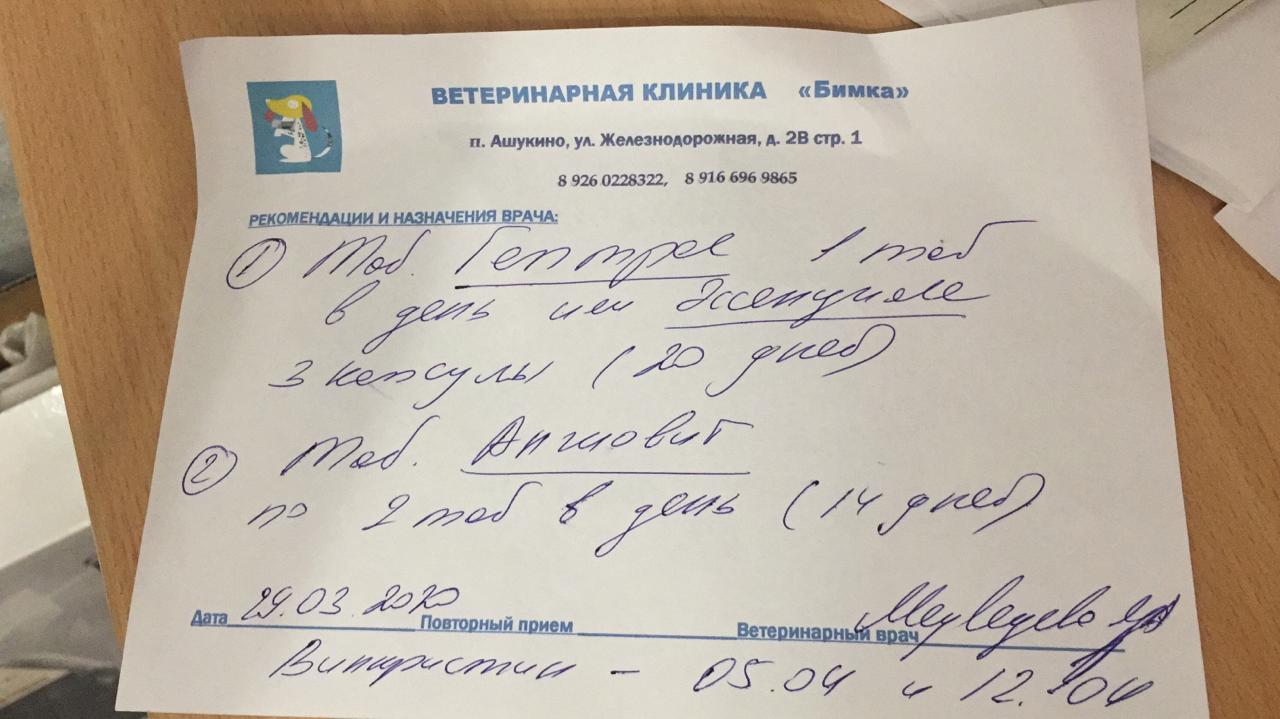 ВЕТЕРИНАРНАЯ КЛИНИКА «Бимка»
п. Ашукино, ул. Железнодорожная, д. 2В стр. 1
8 926 0228322, 8 916 696 9865
РЕКОМЕНДАЦИИ И НАЗНАЧЕНИЯ ВРАЧА:
① Таб. Гептрал 1 таб
в день или Эссенциале
3 капсулы (20 дней)
② Таб. Ангиовит
по 2 таб в день (14 дней)
Дата 29.03.2020 Повторный прием Ветеринарный врач Медведева
Винкристин – 05.04 и 12.04